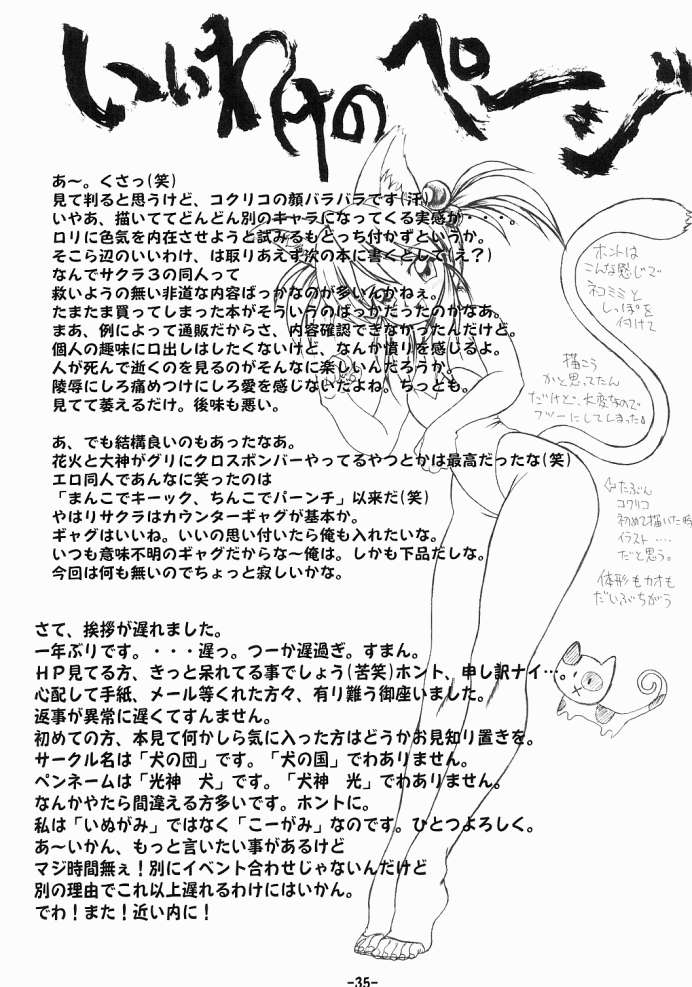 いいわけのページ
あ～。くさっ(笑)
見て判ると思うけど、コクリコの顔バラバラです(汗)
いやあ、描いててどんどん別のキャラになってくる実感が・・・。
ロリに色気を内在させようと試みるもどっち付かずというか。
そこら辺のいいわけ、は取りあえず次の本に書くとして(え?)
なんでサクラ３の同人って
救いようの無い非道な内容ばっかなのが多いんかねぇ。
たまたま買ってしまった本がそういうのばっかだったのかなあ。
まあ、例によって通販だからさ、内容確認できなかったんだけど。
個人の趣味に口出しはしたくないけど、なんか憤りを感じるよ。
人が死んで逝くのを見るのがそんなに楽しいんだろうか。
陵辱にしろ痛めつけにしろ愛を感じないだよね。ちっとも。
見てて萎えるだけ。後味も悪い。
あ、でも結構良いのもあったなあ。
花火と大神がグリにクロスボンバーやってるやつとかは最高だったな(笑)
エロ同人であんなに笑ったのは
「まんこでキーック、ちんこでパーンチ」以来だ(笑)
やはりサクラはカウンターギャグが基本か。
ギャグはいいね。いいの思い付いたら俺も入れたいな。
いつも意味不明のギャグだからな～俺は。しかも下品だしな。
今回は何も無いのでちょっと寂しいかな。
さて、挨拶が遅れました。
一年ぶりです。・・・遅っ。つーか遅過ぎ。すまん。
ＨＰ見てる方、きっと呆れてる事でしょう(苦笑)ホント、申し訳ナイ…。
心配して手紙、メール等くれた方々、有り難う御座いました。
返事が異常に遅くてすんません。
初めての方、本見て何かしら気に入った方はどうかお見知り置きを。
サークル名は「犬の団」です。「犬の国」でわありません。
ペンネームは「光神　犬」です。「犬神　光」でわありません。
なんかやたら間違える方多いです。ホントに。
私は「いぬがみ」ではなく「こーがみ」なのです。ひとつよろしく。
あ～いかん、もっと言いたい事があるけど
マジ時間無ぇ！別にイベント合わせじゃないんだけど
別の理由でこれ以上遅れるわけにはいかん。
でわ！また！近い内に！
ホントは
こんな感じで
ネコミミと
しっぽを
付けて
描こう
かと思ってたん
だけど、大変なので
フツーにしてしまった。
⇦たぶん
コクリコ
初めて描いた時
イラスト……
だと思う。
体形もカオも
だいぶちがう
-35-